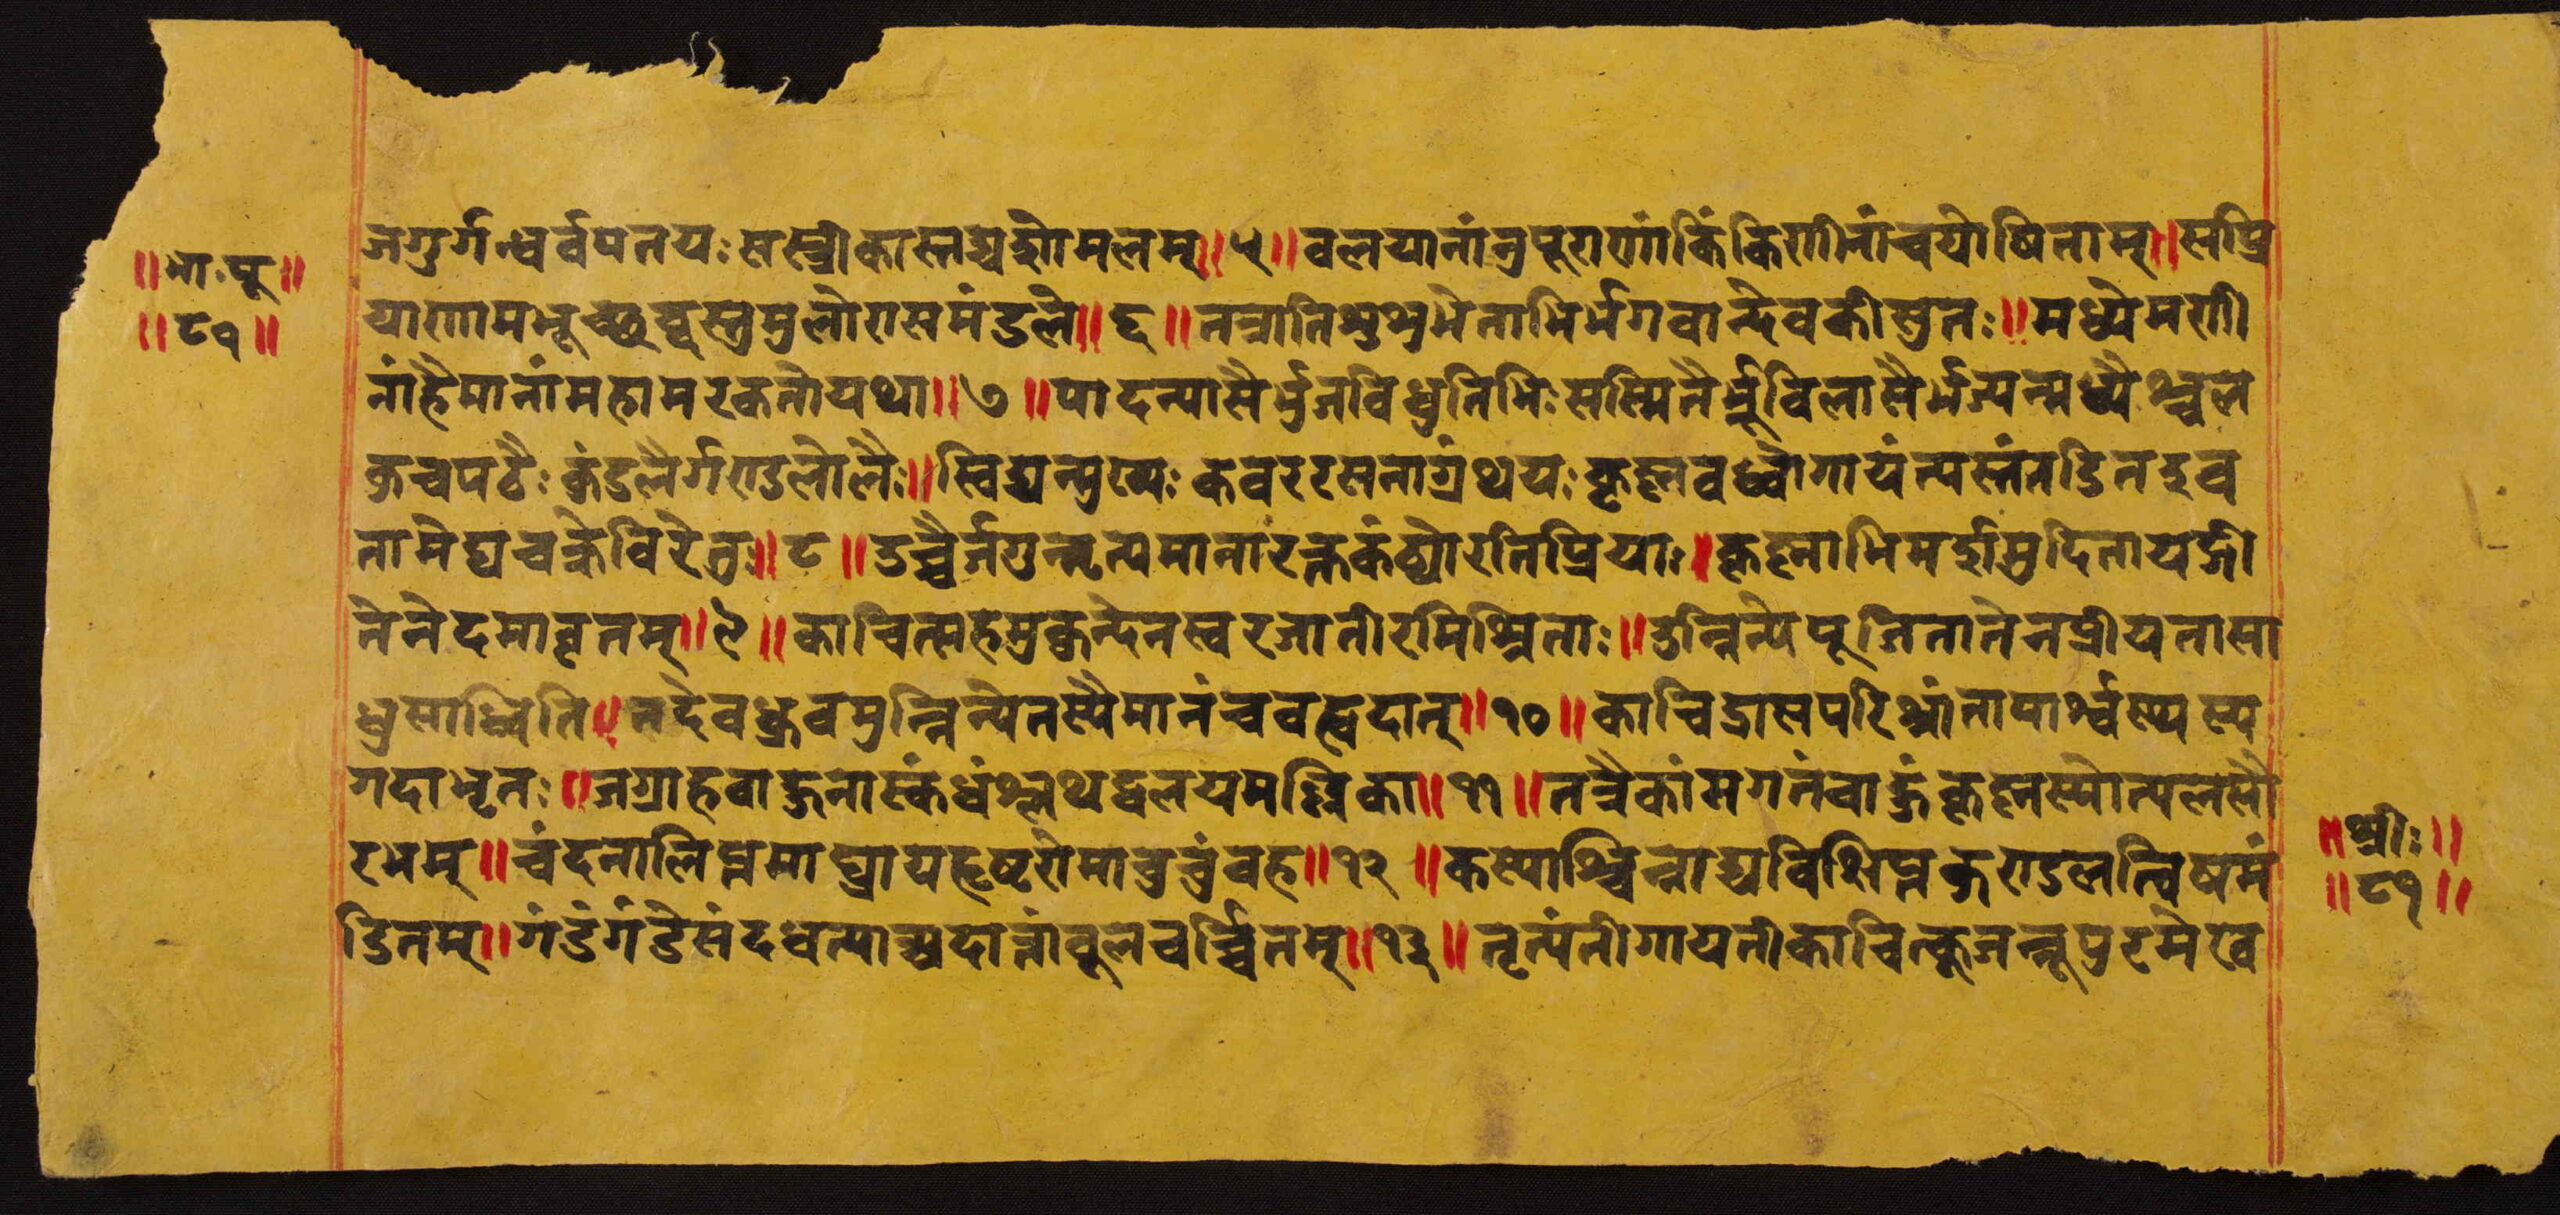 ॥भा.पू॥
॥८१॥
जगुर्गन्धर्वपतयः सस्त्रीकास्तद्यशोमलम्॥५॥वलयानांनुपूराणांकिंकिणीनांचयोषिताम्॥सप्रि
याणामभूच्छब्दस्तुमुलोरासमंडले॥६॥तत्रातिशुशुभेताभिर्भगवान्देवकीसुतः॥मध्येमणी
नांहैमानांमहामरकतोयथा॥७॥पादन्यासैर्भुजविधुतिभिःसस्मितैर्भ्रूविलासैर्भज्यन्मध्यैश्चल
कुचपटैःकुंडलैर्गण्डलोलैः॥स्विद्यन्मुख्यःकवररसनाग्रंथयःकृष्णवध्वोगायंत्यस्तंतडितइव
तामेघचक्रेविरेजुः॥८॥उच्चैर्जगुन्नृत्यमानारक्तकंठ्योरतिप्रियाः॥कृष्णाभिमर्शमुदितायद्गी
तेनेदमावृतम्॥९॥काचित्समहमुकुन्देनस्वरजातीरमिश्रिताः॥उन्निन्येपूजितातेनप्रीयतासा
धुसाध्विति॥तदेवध्रुवमुन्निन्येतस्यैमानंचवह्वदात्॥१०॥काचिद्रासपरिश्रांतापार्श्वस्थस्य
गदाभृतः॥जग्राहवाहुनास्कंधंश्लथद्वलयमल्लिका॥११॥तत्रैकांसगतंवाहुंकृष्णस्योत्पलसौ
रभम्॥चंदनालिप्तमाघ्रायहृष्टरोमाचुचुंवह॥१२॥कस्याश्चिन्नाट्यविक्षिप्तकुण्डलत्विषमं
डितम्॥गंडंगंडेसंदधत्याअदात्तांवूलचर्च्चितम्॥१३॥नृत्यंतीगायतीकाचित्कूजन्नूपुरमेख
॥श्रीः॥
॥८१॥